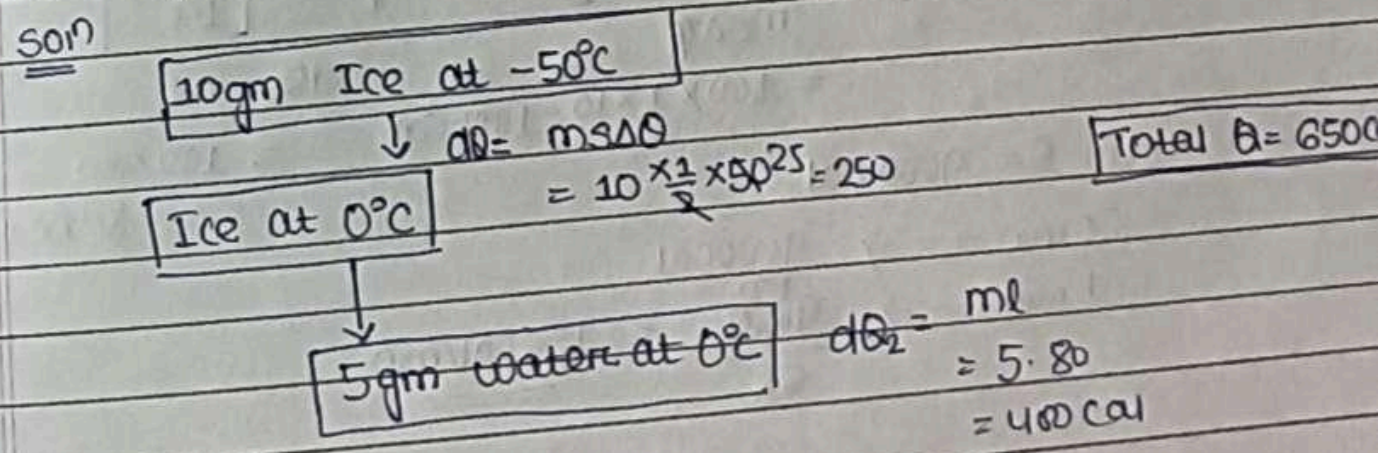 Soln
10gm Ice at -50°C
↓ dQ = msΔθ
= 10 × 1/2 × 50 25 = 250
Total Q = 650C
Ice at 0°C
↓
5gm water at 0°C dQ₂ = ml
= 5.80
= 400 Cal